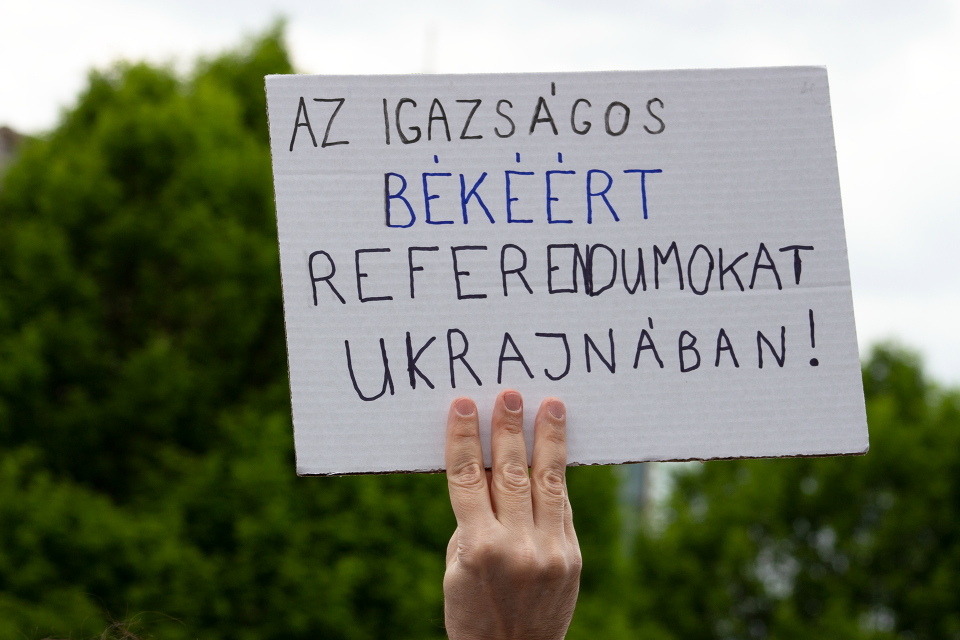 AZ IGAZSÁGOS
BÉKÉÉRT
REFERENDUMOKAT
UKRAJNÁBAN!